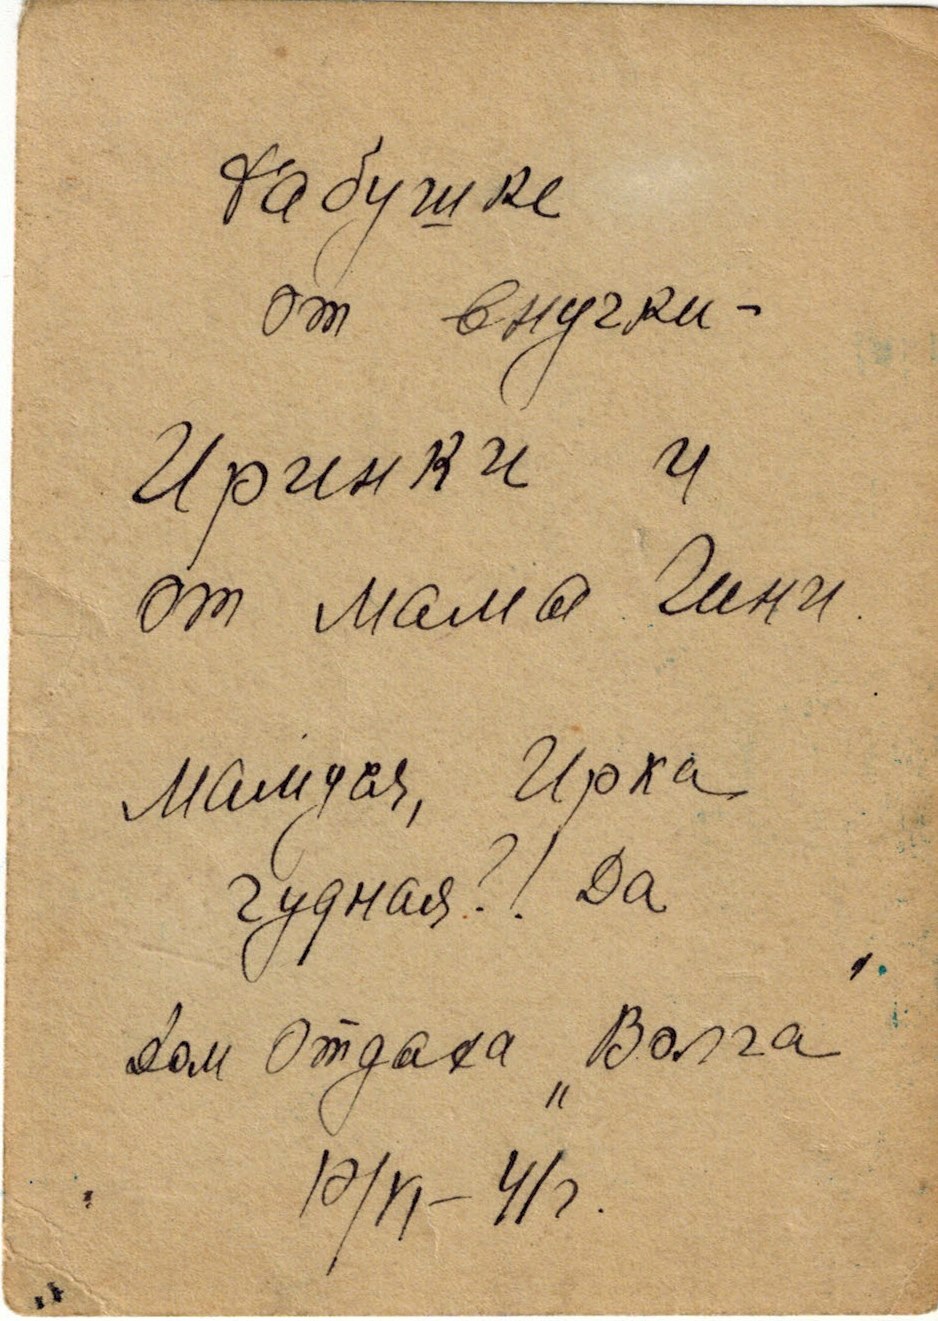 Бабушке
от внучки -
Иринки и
от мама Гини.
Мамуся, Ирка
чудная?! Да
Дом Отдаха „Волга"
/VI – 41 г.